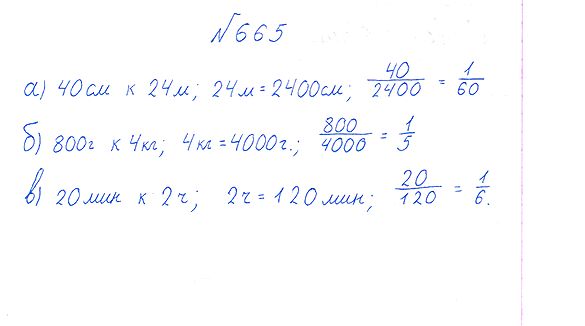 №665
а) 40см к 24м; 24м=2400см; 40/2400 = 1/60
б) 800г к 4кг; 4кг=4000г.; 800/4000 = 1/5
в) 20мин к 2ч; 2ч=120мин; 20/120 = 1/6.